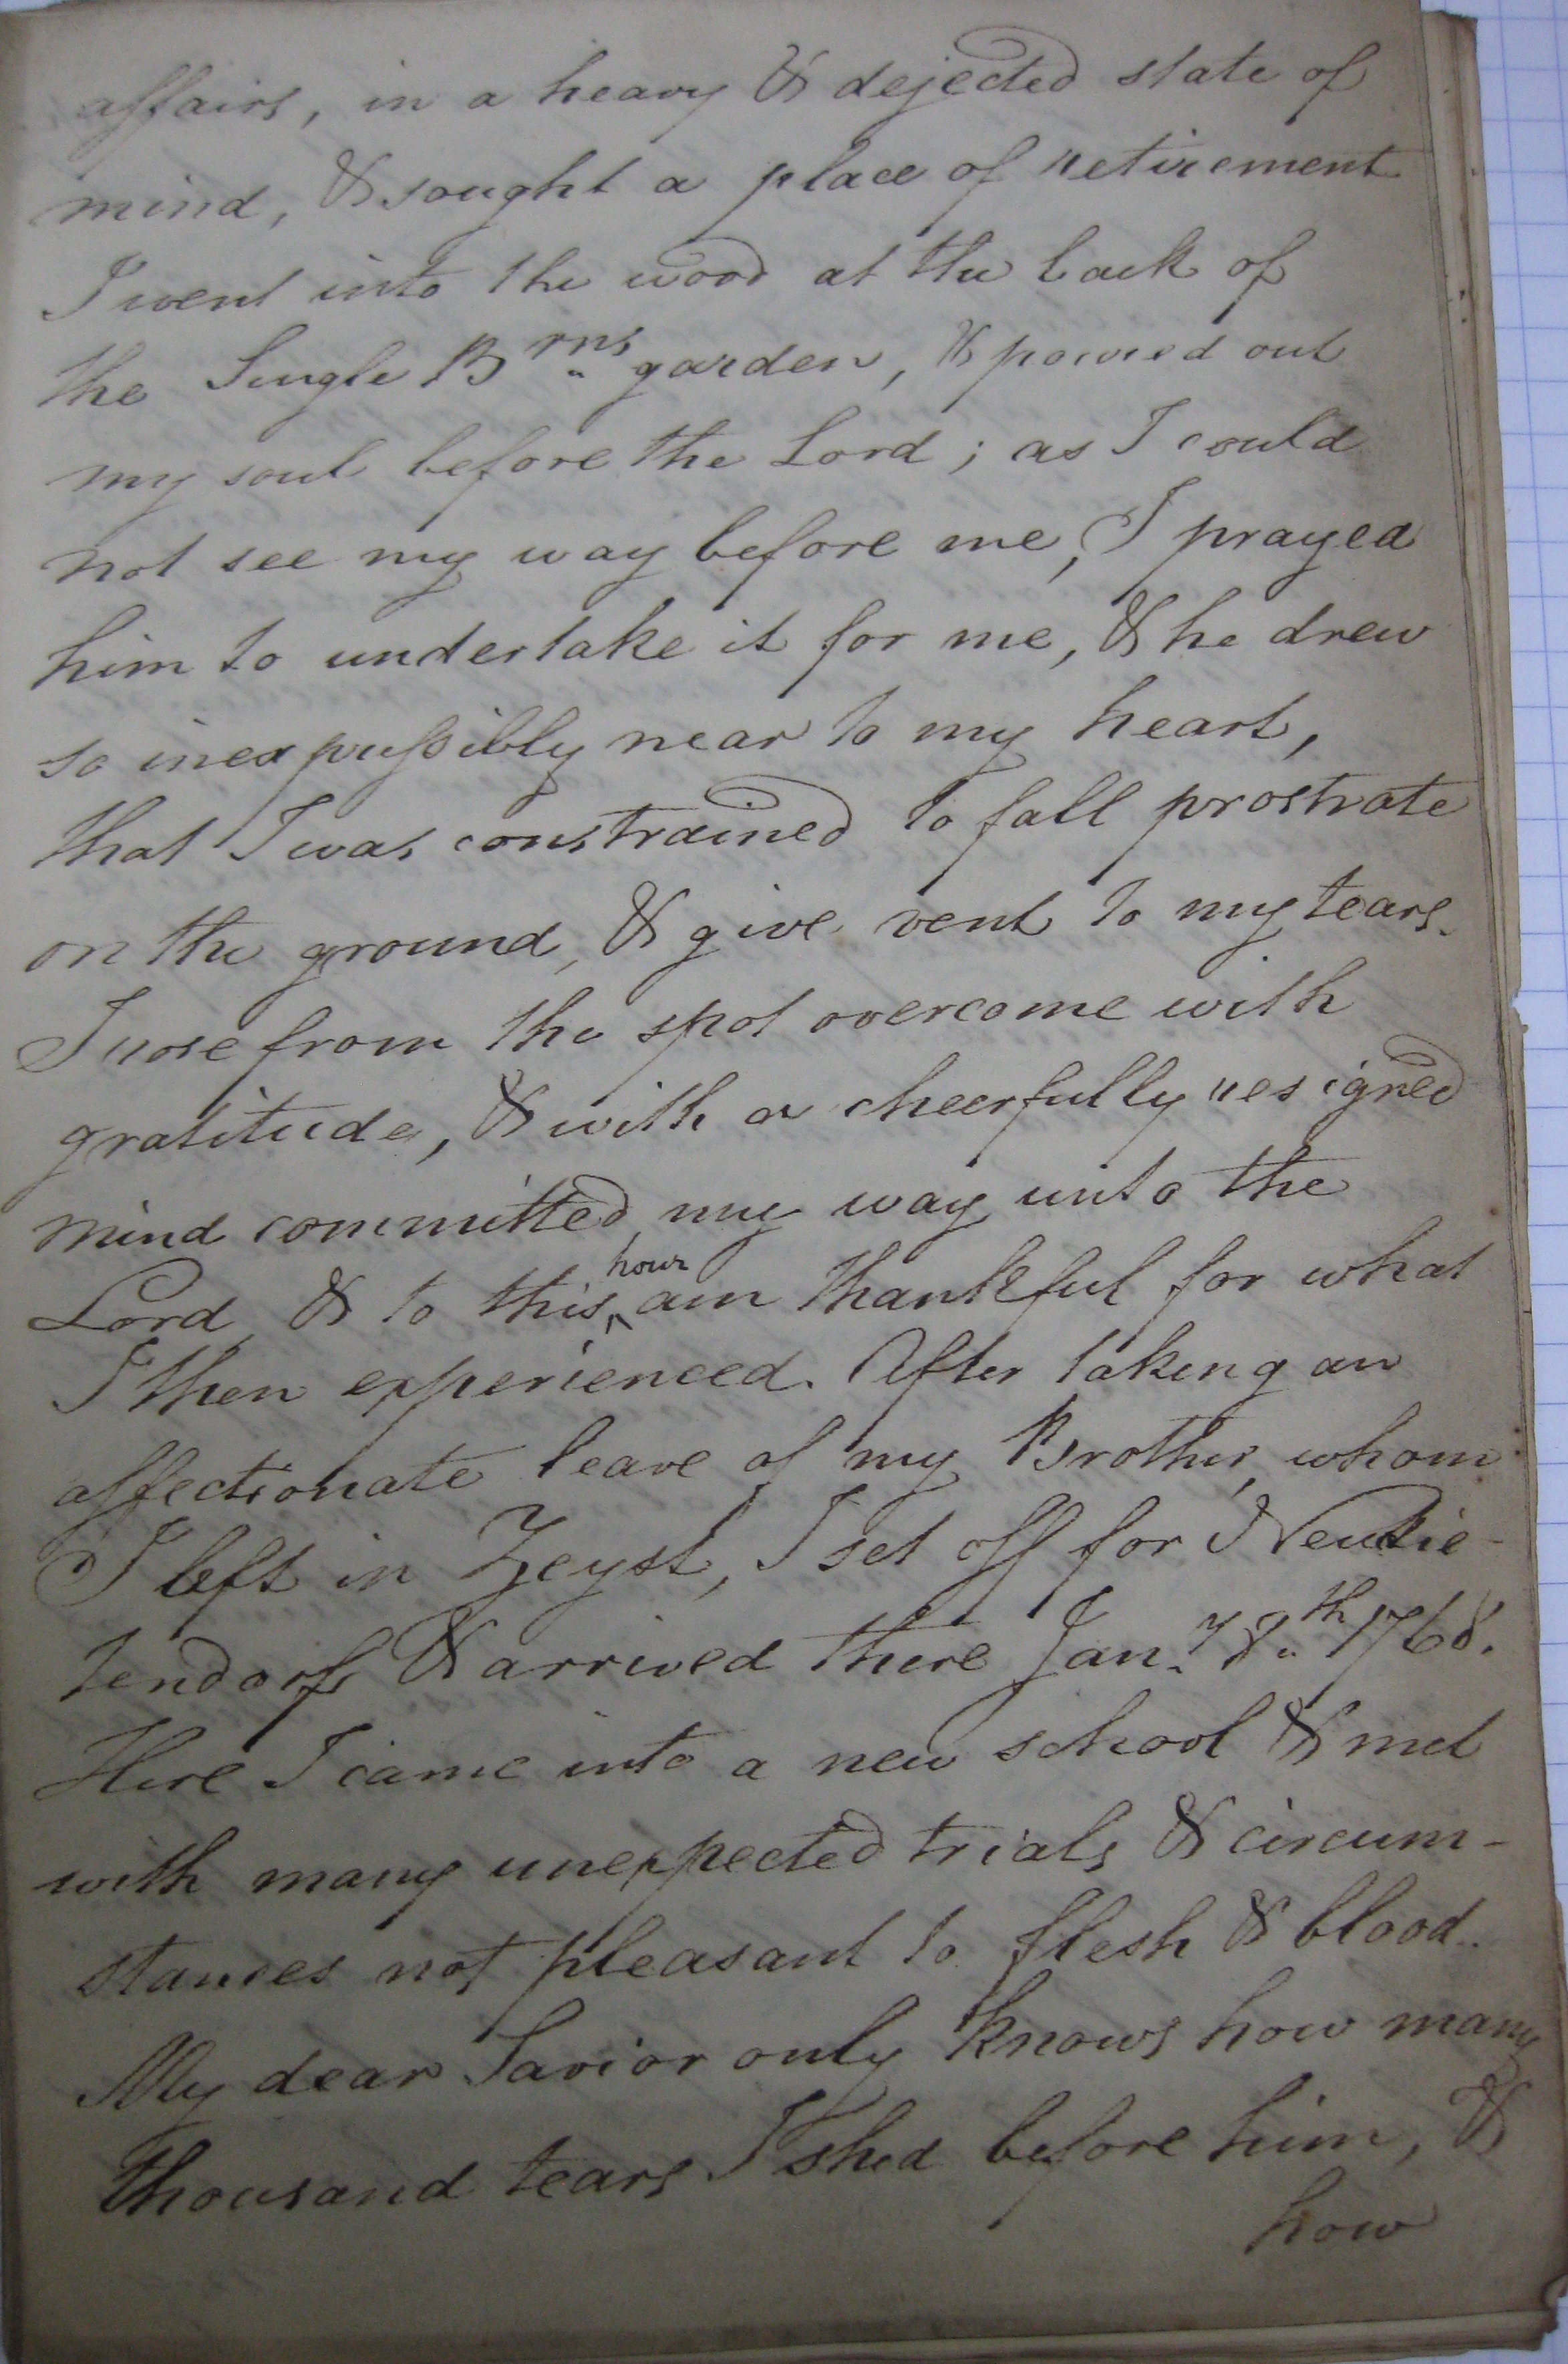 affairs, in a heavy & dejected state of
mind, & sought a place of retirement
I went into the wood at the back of
the Single Brns garden, & poured out
my soul before the Lord; as I could
not see my way before me, I prayed
him to undertake it for me, & he drew
so inexpressibly near to my heart,
that I was constrained to fall prostrate
on the ground, & give vent to my tears.
I rose from the spot overcome with
gratitude, & with a cheerfully resigned
mind committed my way unto the
Lord & to this hour am thankful for what
I then experienced. After taking an
affectionate leave of my Brother, whom
I left in Zeyst, I set off for Neudie-
tendorf, & arrived there Jany 8th 1768.
Here I came into a new school & met
with many unexpected trials & circum-
stances not pleasant to flesh & blood.
My dear Savior only knows how many
thousand tears I shed before him, &
how